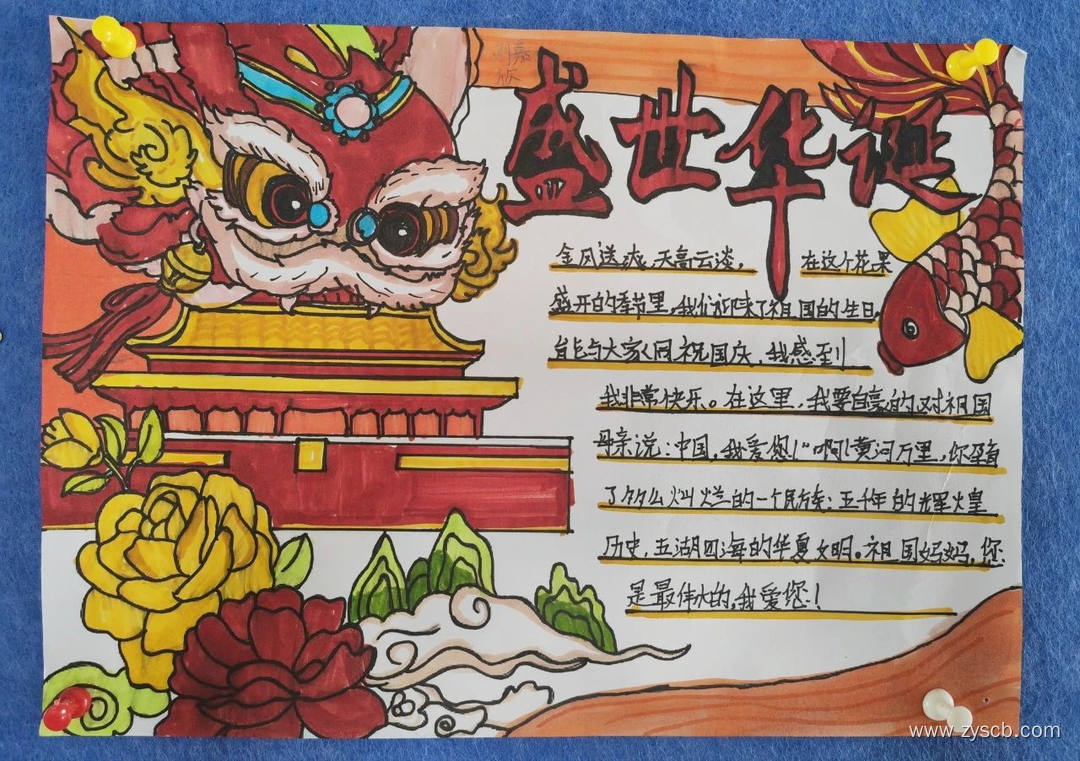 刘嘉欣
盛世华诞
金风送爽，天高云淡， 在这个花果
盛开的季节里，我们迎来了祖国的生日，
能与大家人同祝国庆，我感到
我非常快乐。在这里，我要自豪的对祖国
母亲说：中国，我爱您！“啊！黄河万里，你孕育
了多么灿烂的一个民族：五千年的辉煌
历史，五湖四海的华夏文明。祖国妈妈，您
是最伟大的，我爱您！
www.zyscb.com